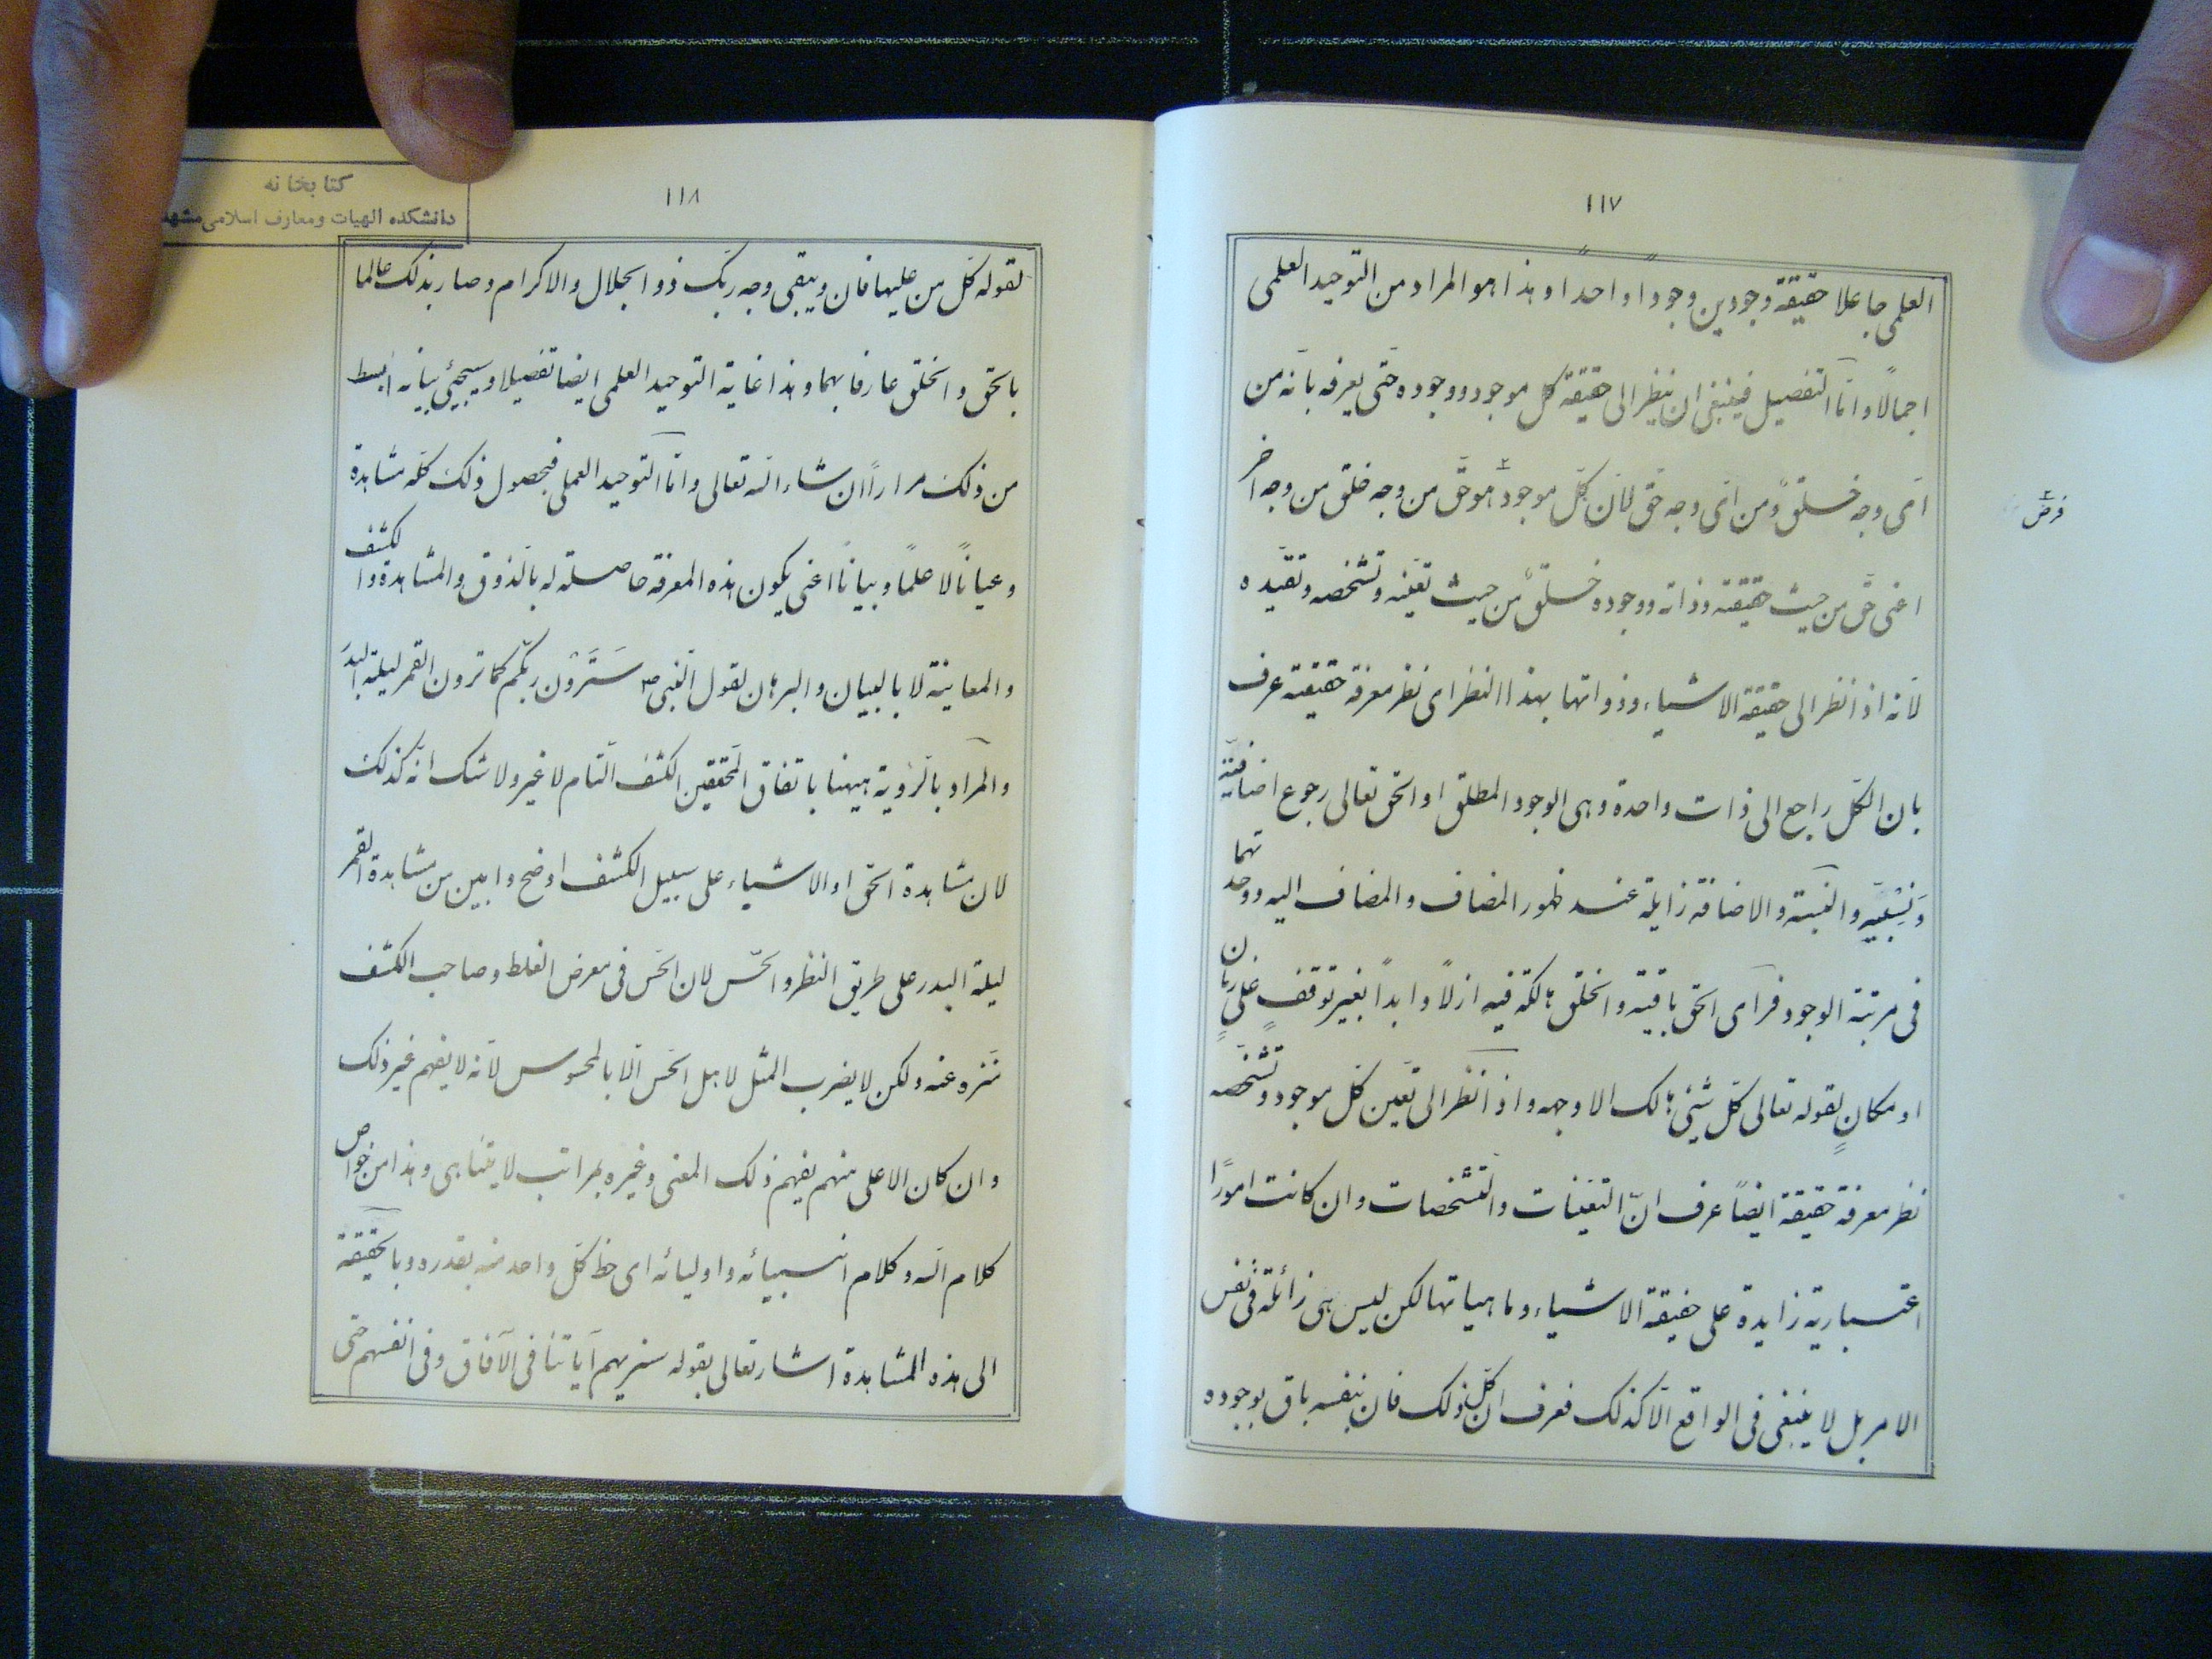 ١١٧
العلمى جاعلا حقيقة وجودين وجوداً واحداً و هذا هو المراد من التوحيد العلمى
اجمالاً و امّا التفصيل فينبغى ان ينظر الى حقيقة كل موجود و وجوده حتى يعرفه بانّه من
اىّ وجه خلقٌ و من اىّ وجه حق لانّ كلّ موجود هو حقّ من وجه خلق من وجه آخر
فرض
اعنى حقّ من حيث حقيقته و ذاته و وجوده خلقٌ من حيث تعيّنه و تشخصه و تقيّده
لانّه اذا نظر الى حقيقة الاشياء و ذواتها بهذا النظر اى نظر معرفة حقيقته عرف
بان الكلّ راجع الى ذات واحدة و هى الوجود المطلق او الحق تعالى رجوع اضافيّة
و نِسْبيّه و النسبة و الاضافة زايلة عند ظهور المضاف و المضاف اليه و وحدتهما
فى مرتبة الوجود فرآى الحق باقية و الخلق هالكة فيه ازلاً و ابداً بغير توقف على زمان
او مكانٍ لقوله تعالى كلّ شيئى هالك الا وجهه و اذا نظر الى تعيّن كلّ موجود و تشخّصه
نظر معرفة حقيقة ايضاً عرف انّ التعيّنات و التشخصات و ان كانت اموراً
اعتبارية زايدة على حقيقة الاشياء و ماهياتها لكن ليس هى زائلة فى نفس
الامر بل لا ينبغى فى الواقع الّا كذلك فعرف ان كلّ ذلك فان بنفسه باق بوجوده
١١٨
كتابخانه
دانشكده الهيات ومعارف اسلامى مشهد
لقوله كلّ من عليها فان و يبقى وجه ربّك ذو الجلال و الاكرام و صار بذلك عالما
بالحق و الخلق عارفا بهما و هذا غاية التوحيد العلمى ايضا تفصيلا و سيجيئى بيانه ابسط
من ذلك مراراً ان شاء الله تعالى و امّا التوحيد العملى فبحصول ذلك كلّه مشاهدة
و عياناً لا علماً و بياناً اعنى يكون هذه المعرفة حاصلة له بالذّوق و المشاهدة و الكشف
و المعاينة لا بالبيان و البرهان لقول النّبى ص سَتَرَوْن ربّكم كما ترون القمر ليلة البدر
و المراد بالرّؤية هيهنا باتفاق المحققين الكشف التّام لا غير و لا شك انّه كذلك
لان مشاهدة الحق او الاشياء على سبيل الكشف اوضح و ابين من مشاهدة القمر
ليلة البدر على طريق النظر و الحسّ لان الحسّ فى معرض الغلط و صاحب الكشف
منزه عنه ولكن لا يضرب المثل لاهل الحسّ الّا بالمحسوس لانّه لا يفهم غير ذلك
و ان كان الاعلى منهم يفهم ذلك المعنى و غيره بمراتب لا يتناهى و هذا من خواص
كلام الله و كلام انبيائه و اوليائه اى حظ كلّ واحد منه بقدره و بالحقيقة
الى هذه المشاهدة اشار تعالى بقوله سنريهم آياتنا فى الآفاق و فى انفسهم حتى